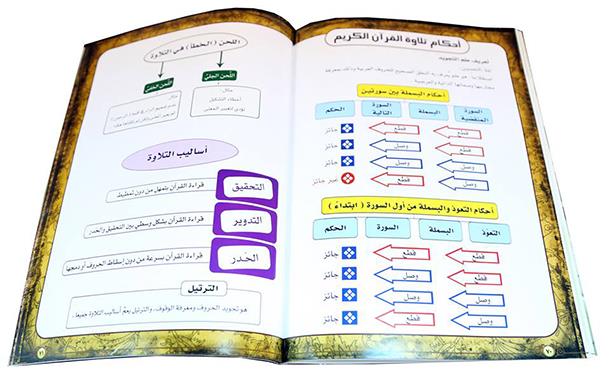 أحكام تلاوة القرآن الكريم
تعريف علم التجويد
أحكام البسملة بين سورتين
السورة المنقضية
البسملة
السورة التالية
الحكم
قطع
قطع
جائز
وصل
وصل
جائز
قطع
وصل
جائز
وصل
قطع
غير جائز
أحكام التعوذ والبسملة من أول السورة ( ابتداءً )
التعوذ
البسملة
السورة
الحكم
قطع
قطع
جائز
وصل
وصل
جائز
قطع
وصل
جائز
وصل
قطع
جائز
٧٠
اللحن (الخطأ) في التلاوة
اللحن الجلي
اللحن الخفي
مثال:
أخطاء التشكيل
تؤدي لتغيير المعنى
مثال:
أساليب التلاوة
التحقيق
قراءة القرآن بتمهل من دون تمطيط
التدوير
قراءة القرآن بشكل وسطي بين التحقيق والحدر
الحدر
قراءة القرآن بسرعة من دون إسقاط الحروف أو دمجها
الترتيل
هو تجويد الحروف ومعرفة الوقوف، والترتيل يعم أساليب التلاوة جميعها.